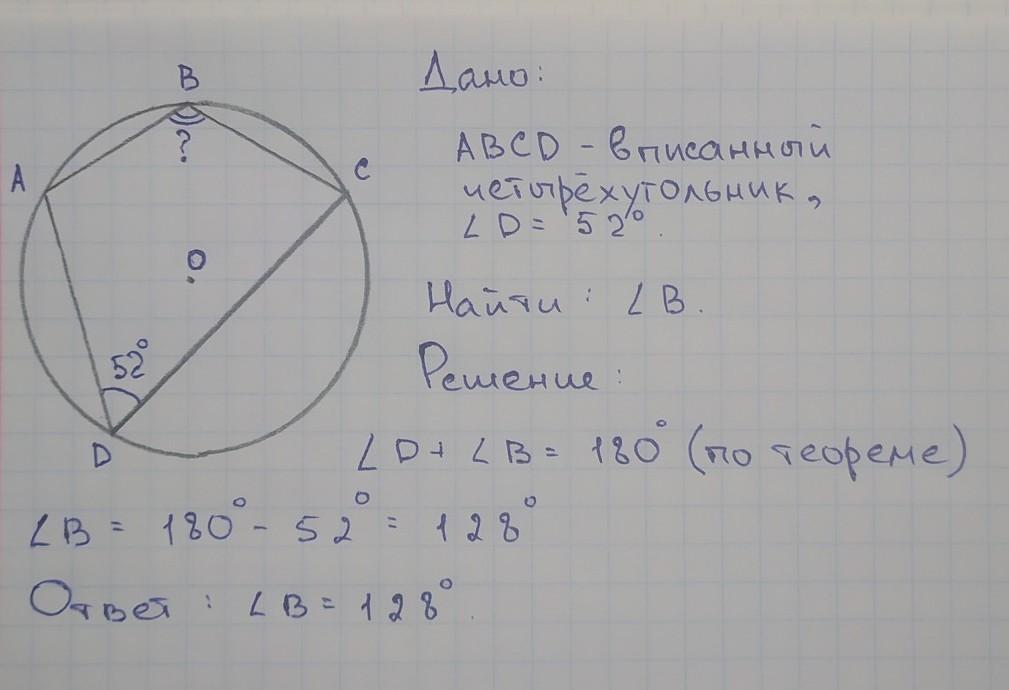 B
?
A
C
O
52°
D
Дано:
ABCD - вписанный
четырёхугольник,
∠D = 52°.
Найти : ∠B.
Решение:
∠D + ∠B = 180° (по теореме)
∠B = 180° - 52° = 128°
Ответ : ∠B = 128°.